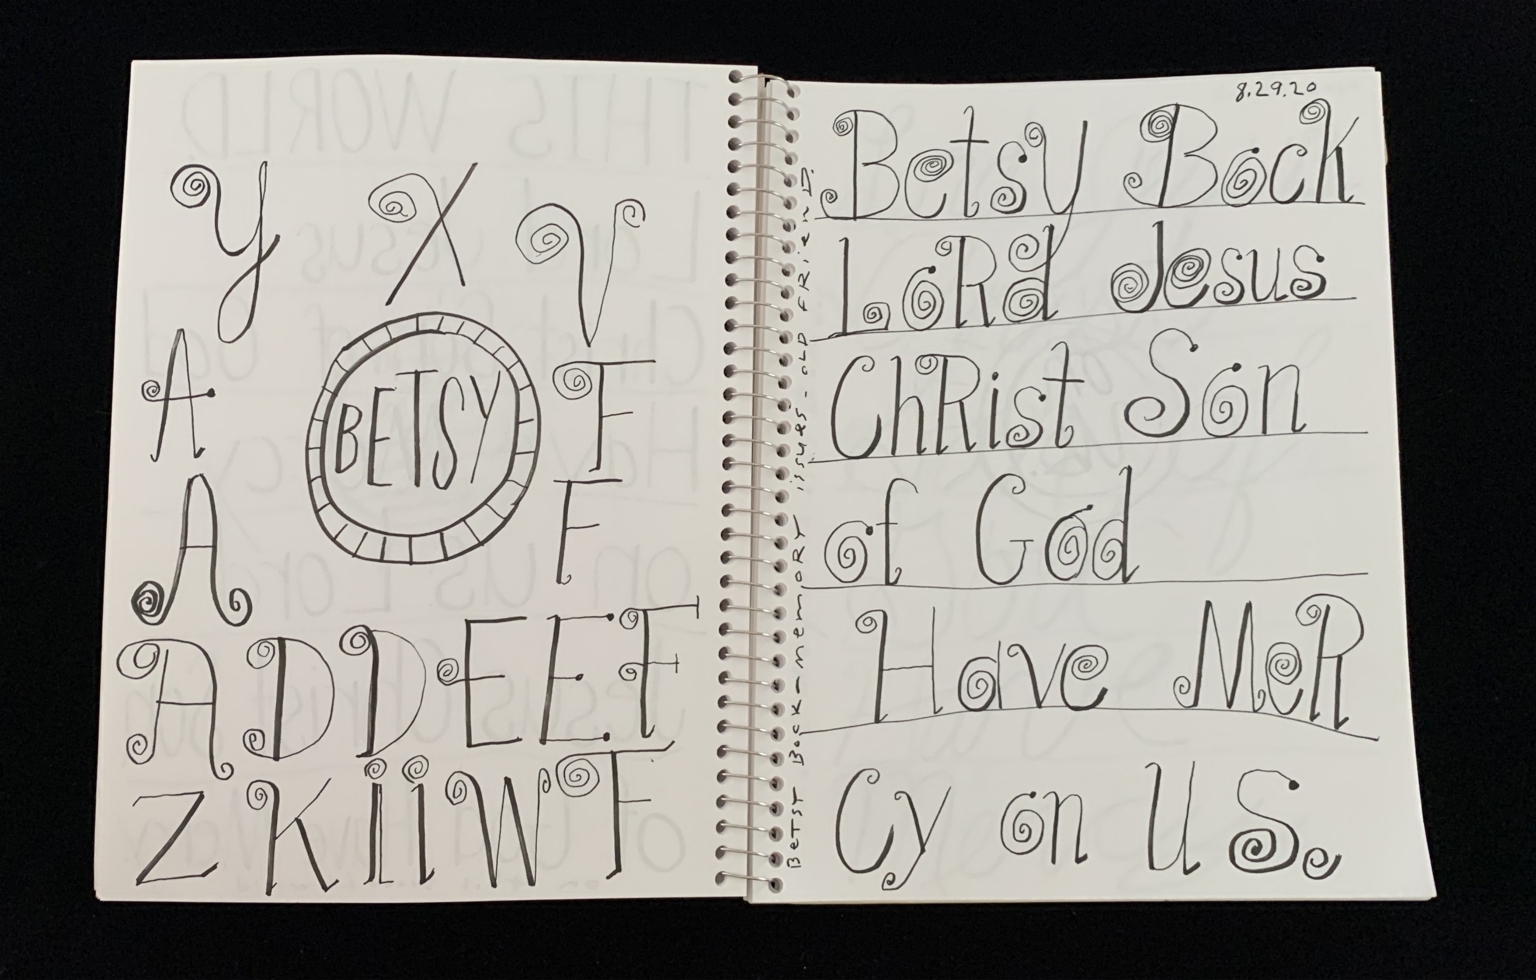 Y X V
A BETSY F
A F
A D D E E F
Z K I I W F
8.29.20
Betsy Bock
LoRd Jesus
ChRist Son
of God
Have MeR
Cy on US.
BETSY Bock-memORY issues-OLD FRieND.